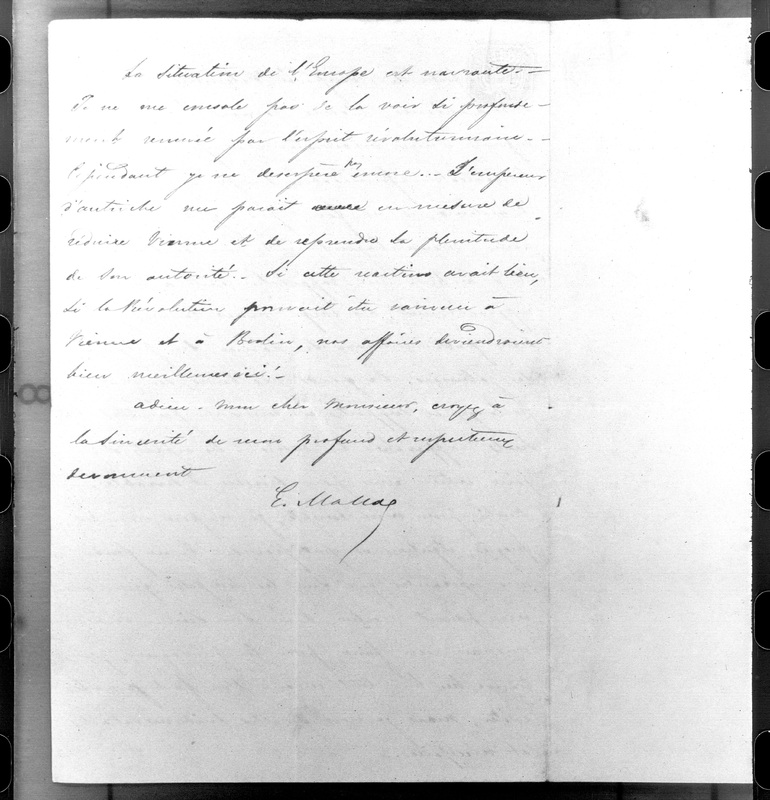 La situation de l'Europe est navrante. —
Je ne me console pas de la voir si profondé-
ment remuée par l'esprit révolutionnaire. -
Cependant je ne désespère pas encore... L'empereur
d'autriche me parait en mesure de
réduire Vienne et de reprendre la plénitude
de son autorité. - Si cette réaction avait lieu,
si la Révolution pouvait être vaincue à
Vienne et à Berlin, nos affaires deviendraient
bien meilleures ici! -
adieu - mon cher Monsieur, croyez à
la sincérité de mon profond et respectueux
devouement
E. Mallac